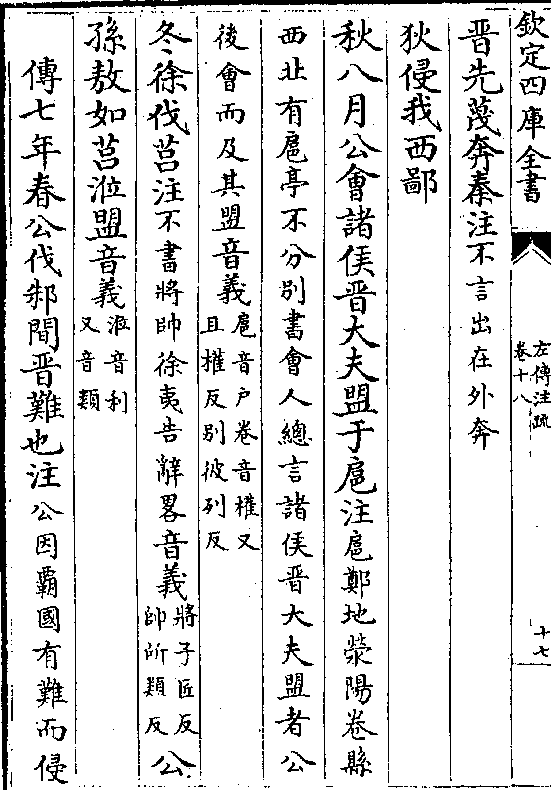 欽定四庫全書
左傳注疏
卷十八
十七
晉先蔑奔秦注不言出在外奔
狄侵我西鄙
秋八月公會諸侯晉大夫盟于扈注扈鄭地滎陽卷縣
西北有扈亭不分别書會人總言諸侯晉大夫盟者公
後會而及其盟音義扈音户卷音權又
且權反别彼列反
冬徐伐莒注不書將帥徐夷告辭畧音義將子匠反
帥所類反公
孫敖如莒涖盟音義涖音利
又音類
傳七年春公伐邾間晉難也注公因霸國有難而侵